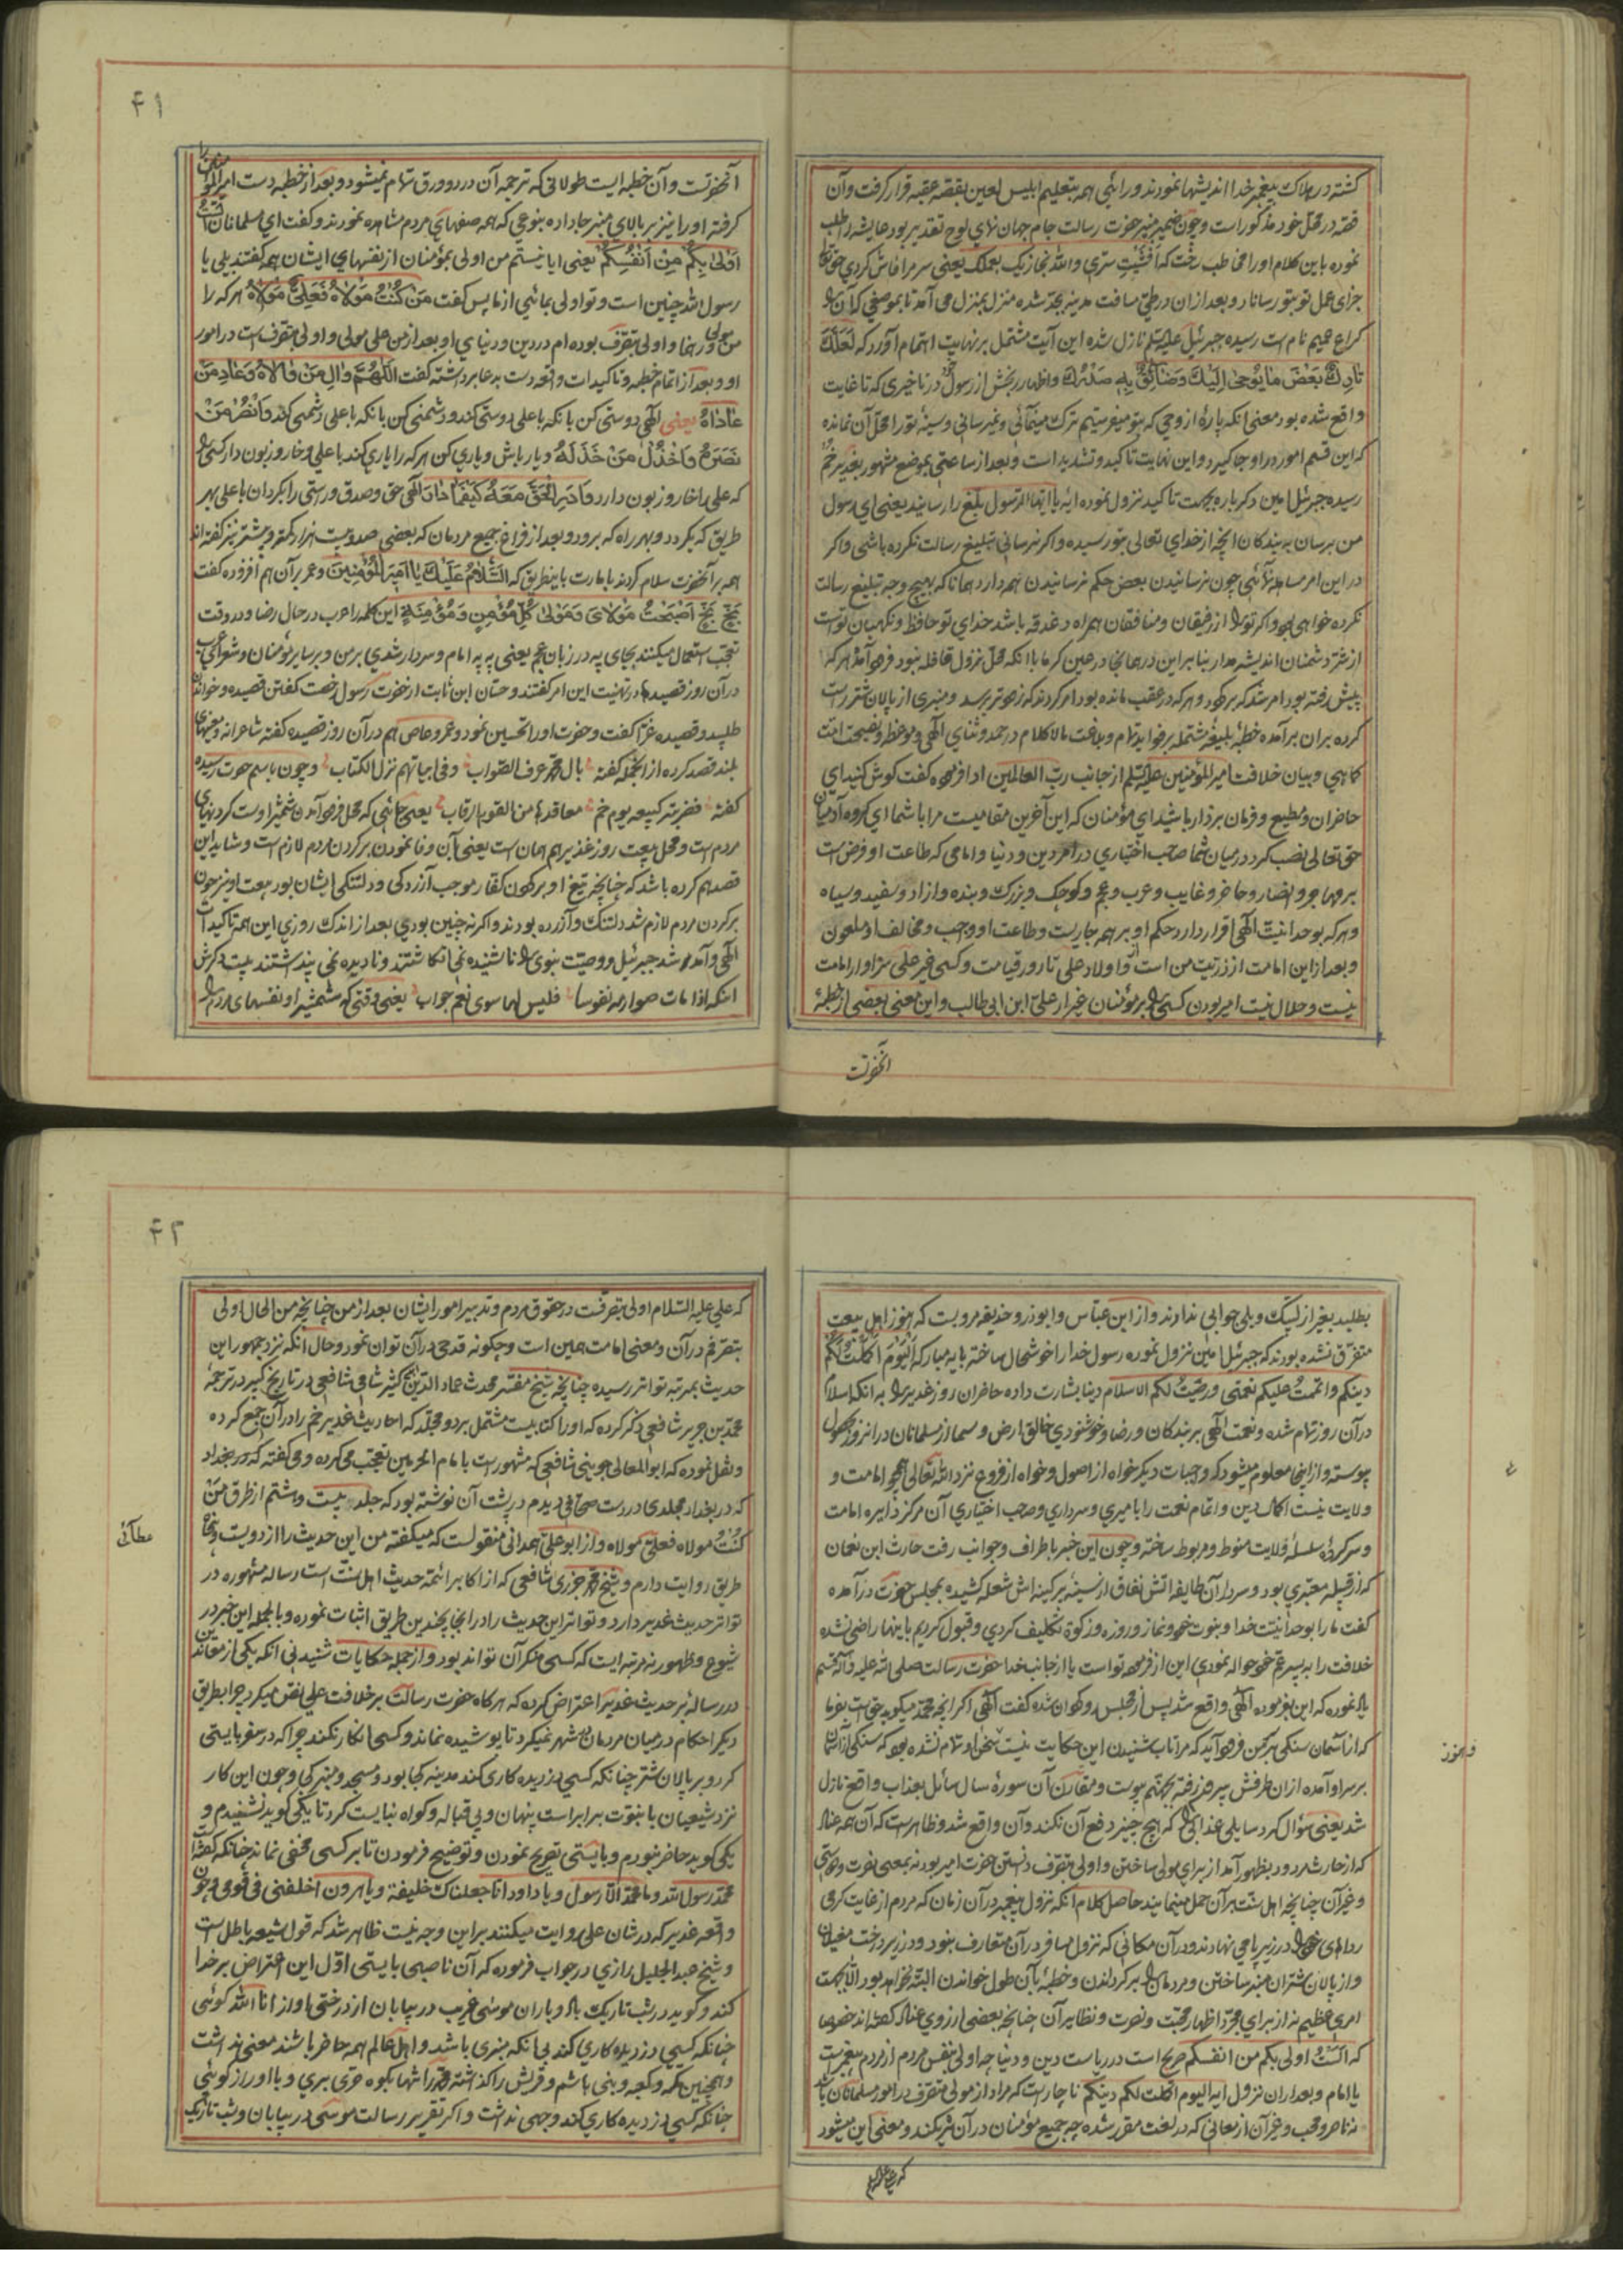 کشته در هلاک پیغمبر خدا اندیشها نمودند و رائی همه بتعلیم ابلیس لعین بقصه عقبه قرار کرفت وآن
قصه در محل خود مذکور است وچون ضمیر منیر حضرت رسالت جام جهان نمای لوح تقدیر بود عایشه را طلب
نموده باین کلام اورا مخاطب رخت که افشیت ستری والله نجازیک بعملک یعنی سر مرا فاش کردی حق تعا
جزای عمل تو بتو رساناد وبعد از ان در طی مسافت مدینه بجد شده منزل بمنزل می آمد تا بموضعی که آن را
کراع عمیم نام است رسیده جبرئیل علیه السلم نازل شده این آیت مشتمل بر نهایت اهتمام آورد که لعلک
تارک بعض ما یوحی الیک وضائق به صدرک واظهار رنجش از رسول در تاخیری که تا غایت
واقع شده بود معنی انکه پارۀ از وحی که بتو میفرستیم ترک مینمائی ونمیرسانی وسینۀ تو را محل آن نمانده
که این قسم امور در او جا کیرد واین نهایت تاکید وتشدید است وبعد از ساعتی بموضع مشهور بغدیر خم
رسیده جبرئیل امین دکر باره بجهت تاکید نزول نموده ایه یا ایها الرسول بلغ رسانید یعنی ای رسول
من برسان به بندکان انچه از خدای تعالی بتو رسیده واکر نرسانی تبلیغ رسالت نکرده باشی واکر
در این امر مساهله نمائی چون نرسانیدن بعض حکم نرسانیدن همه دارد همانا که بهیچ وجه تبلیغ رسالت
نکرده خواهی بود واکر تو را از رفیقان ومنافقان همراه دغدغه باشد خدای تو حافظ ونکهبان تو است
از شر دشمنان اندیشه مدار بنا بر این در همانجا در عین کرما با انکه محل نزول قافله نبود فرود آمد هر که
پیش رفته بود امر شد که بر کردد وهر که در عقب مانده بود امر کردند که زودتر برسد ومنبری از پالان شتر راست
کرده بران بر آمده خطبۀ بلیغه مشتمله بر فواید تمام وبلاغت مالا کلام در حمد وثنای الهی وموعظه ونصیحت امت
کاهی وبیان خلافت امیر المؤمنین علیه السلم از جانب رب العالمین ادا فرموده کفت کوش کنید ای
حاضران ومطیع وفرمان بردار باشید ای مؤمنان که این آخرین مقامیست مرا با شما ای کروه آدمیان
حق تعالی نصب کرد در میان شما صاحب اختیاری در امر دین ودنیا وامامی که طاعت او فرض است
بر مهاجر وانصار وحاضر وغایب وعرب وعجم وکوچک وبزرک وبنده وازاد وسفید وسیاه
وهر که بوحدانیت الهی اقرار دارد حکم او بر همه جاریست وطاعت او واجب ومخالف او ملعون
وبعد از این امامت از ذریت من است واولاد علی تا روز قیامت وکسی غیر علی سزاوار امامت
نیست وحلال نیست امیر بودن کسی را بر مؤمنان غیر از علی ابن ابی طالب واین معنی بعضی از خطبۀ
آنحضرتست
۴۱
آنحضرتست وآن خطبه ایست طولانی که ترجمه آن در دو ورق تمام نمیشود وبعد از خطبه دست امیر المؤمنین را
کرفته اورا نیز بر بالای منبر جا داده بنوعی که همه صفهای مردم مشاهده نمودند وکفت ای مسلمانان الست
اولی بکم من انفسکم یعنی ایا نیستم من اولی بمؤمنان از نفسهای ایشان همه کفتند بلی یا
رسول الله چنین است وتو اولی بمائی از ما پس کفت من کنت مولاه فعلی مولاه هر که را
من مولی ورهنما واولی بتصرف بوده ام در دین ودنیای او بعد از من علی مولی واولی بتصرف است در امور
او وبعد از اتمام خطبه وتاکیدات واقعه دست بدعا برداشته کفت اللهم وال من والاه وعاد من
عاداه یعنی الهی دوستی کن با انکه با علی دوستی کند ودشمنی کن با انکه با علی دشمنی کند وانصر من
نصره واخذل من خذله ویار باش ویاری کن هر که را یاری کند با علی وخار وزبون دار کسی را
که علی را خار وزبون دارد وادر الحق معه کیفما دار الهی حق وصدق وراستی را بکردان با علی بهر
طریق که بکردد وبهر راه که برود وبعد از فراغ جمیع مردمان که بعضی صد وبیست هزار کمتر وبیشتر نیز کفته اند
همه بر آنحضرت سلام کردند بامارت باینطریق که السلام علیک یا امیر المؤمنین وعمر بر آن هم افزوده کفت
بخ بخ اصبحت مولای ومولی کل مؤمن ومؤمنة این کلمه را عرب در حال رضا ودر وقت
تعجب استعمال میکنند بجای په په در زبان عجم یعنی په په امام وسردار شدی بر من وبر سایر مؤمنان وشعرای عرب
در آن روز قصیدها در تهنیت این امر کفتند وحسان ابن ثابت از حضرت رسول رخصت کفتن قصیده وخواندن
طلبید وقصیده غرا کفت وحضرت اورا تحسین نمود وعمرو عاص هم در آن روز قصیده کفته شاعرانه ومعنیهای
بلند قصد کرده از انجمله کفته بآل محمد عرف الصواب وفی ابیاتهم نزل الکتاب وچون باسم حضرت رسیده
کفته فضربته کبیعه یوم خم معاقدها من القوم الرقاب یعنی جائی که محل فرود آمدن شمشیر اوست کردنهای
مردم است ومحل بیعت روز غدیر هم همان است یعنی آن وفا نمودن بر کردن مردم لازم است وشاید این
قصد هم کرده باشد که چنانچه تیغ او بر کردن کفار موجب آزردکی ودلتنکی ایشان بود بیعت او نیز چون
بر کردن مردم لازم شد دلتنک وآزرده بودند واکر نه چنین بودی بعد از اندک روزی این همه تاکیدات
الهی وآمد شد جبرئیل ووصیت نبوی را ناشنیده نمی انکاشتند ونادیده نمی پنداشتند بیت دیکرش
اینکه اذا مات صوارمه نفوسا فلیس لها سوی نعم جواب یعنی وقتی که شمشیر او نفسهای مردم را
بطلبد بغیر از لبیک وبلی جوابی ندارند واز ابن عباس وابوذر وحذیفه مرویست که هنوز اهل بیعت
متفرق نشده بودند که جبرئیل امین نزول نموده رسول خدا را خوشحال ساخته بایه مبارکه الیوم اکملت لکم
دینکم واتممت علیکم نعمتی ورضیت لکم الاسلام دینا بشارت داده حاضران روز غدیر را به انکه اسلام
در آن روز تمام شده ونعمت الهی بر بندکان ورضا وخوشنودی خالق ارض وسما از مسلمانان در انروز بحصول
پیوسته واز اینجا معلوم میشود که واجبات دیکر خواه از اصول وخواه از فروع نزد الله تعالی همچو امامت و
ولایت نیست اکمال دین واتمام نعمت را بامیری وسرداری وصاحب اختیاری آن مرکز دایره امامت
وسر کردۀ سلسلۀ ولایت منوط ومربوط ساخته وچون این خبر باطراف وجوانب رفت حارث ابن نعمان
که از قبیله معتبری بود وسردار آن طایفه اتش نفاق از سینه پر کینه اش شعله کشیده بمجلس حضرت در آمده
کفت ما را بوحدانیت خدا وبنوت خود ونماز وروزه وزکوة تکلیف کردی وقبول کردیم باینها راضی نشده
خلافت را به پسر عم خود حواله نمودی این از فرموده تو است یا از جانب خدا حضرت رسالت صلی الله علیه وآله قسم
یاد نموده که این بفرموده الهی واقع شد پس از مجلس رو کردان شده کفت الهی اکر انچه محمد میکوید حق است بفرما
که از آسمان سنکی بر من فرود آید که مرا تاب شنیدن این حکایت نیست سخن او تمام نشده بود که سنکی از آسمان
بر سر او آمده از ان طرفش بیرون رفته بجهنم پیوست ومقارن آن سورۀ سال سائل بعذاب واقع نازل
شد یعنی سؤال کرد سایلی عذابی را که هیچ چیز دفع آن نکند وآن واقع شد وظاهر است که آن همه عناد
که از حارث مردود بظهور آمد از برای مولی ساختن واولی بتصرف دانستن حضرت امیر بود نه بمعنی نصرت ودوستی
وغیر آن چنانچه اهل سنت بر آن حمل مینمایند حاصل کلام انکه نزول پیغمبر در آن زمان که مردم از غایت کرمی
ردای خود را در زیر پا می نهادند ودر آن مکانی که نزول مسافر در آن متعارف نبود ودر زیر درخت مغیلان
واز پالان شتران منبر ساختن ومردمان را بر کرداندن وخطبۀ بآن طول خواندن البته نخواهد بود الا بجهت
امری عظیم نه از برای مجرد اظهار محبت ونصرت ونظایر آن چنانچه بعضی از روی عناد کفته اند خصوصا
که الست اولی بکم من انفسکم صریح است در ریاست دین ودنیا چه اولی بنفس مردم از مردم پیغمبر است
یا امام وبعد از ان نزول ایه الیوم اکملت لکم دینکم ناچار است که مراد از مولی متصرف در امور مسلمانان باشد
نه ناصر ومحب وغیر آن از معانی که در لغت مقرر شده چه جمیع مؤمنان در آن شریکند ومعنی این میشود
که علی علیه السلام
۴۲
که علی علیه السلام اولی بتصرفست در حقوق مردم وتدبیر امور ایشان بعد از من چنانچه من الحال اولی
بتصرفم در آن ومعنی امامت همین است وچکونه قدحی در آن توان نمود وحال انکه نزد جمهور این
حدیث بمرتبه تواتر رسیده چنانچه شیخ مفسر محدث عماد الدین کثیر شامی شافعی در تاریخ کبیر در ترجمۀ
محمد بن جریر شافعی ذکر کرده که اورا کتابیست مشتمل بر دو مجلد که احادیث غدیر خم را در آن جمع کرده
ونقل نموده که ابو المعالی جوینی شافعی که مشهور است بامام الحرمین تعجب می کرده ومی کفته که در بغداد
که در بغداد مجلدی در دست صحافی دیدم در پشت آن نوشته بود که جلد بیست وهشتم از طرق من
کنت مولاه فعلی مولاه واز ابو علی همدانی منقولست که میکفته من این حدیث را از دویست وپنجاه
طریق روایت دارم وشیخ محمد جزری شافعی که از اکابر ائمه حدیث اهل سنت است رساله مشهوره در
تواتر حدیث غدیر دارد وتواتر این حدیث را در انجا بچندین طریق اثبات نموده وبالجمله این خبر در
شیوع وظهور نه بمرتبه ایست که کسی منکر آن تواند بود واز جمله حکایات شنیدنی انکه یکی از معاندین
در رسالۀ بر حدیث غدیر اعتراض کرده که هر کاه حضرت رسالت بر خلافت علی نص میکرد چرا بطریق
دیکر احکام در میان مردمان شهر نمیکرد تا پوشیده نماند وکسی انکار نکند چرا که در سفر بایستی
کرد وبر پالان شتر چنانکه کسی دزدیده کاری کند مدینه کجا بود ومسجد ومنبر کی وچون این کار
نزد شیعیان با نبوت برابر است پنهان وبی قباله وکواه نبایست کرد تا یکی کوید نشنیدم و
یکی کوید حاضر نبودم وبایستی تصریح نمودن وتوضیح فرمودن تا بر کسی مخفی نماند چنانکه کفته
محمد رسول الله وما محمد الا رسول ویا داود انا جعلناک خلیفة ویا هرون اخلفنی فی قومی وچون
واقعه غدیر که در شان علی روایت میکنند بر این وجه نیست ظاهر شد که قول شیعه باطل است
وشیخ عبد الجلیل رازی در جواب فرموده که آن ناصبی بایستی اول این اعتراض بر خدا
کند وکوید در شب تاریک باد وباران موسی غریب در بیابان از درختی آواز انا الله کوئی
چنانکه کسی دزدیده کاری کند بی انکه منبری باشد واهل عالم همه حاضر باشند معنی نداشت
وهمچنین مکه وکعبه وبنی هاشم وقریش را کذاشته محمد را تنها بکوه حری بری وبا او راز کوئی
چنانکه کسی دزدیده کاری کند وجهی نداشت واکر تقریر رسالت موسی در بیابان وشب تاریک